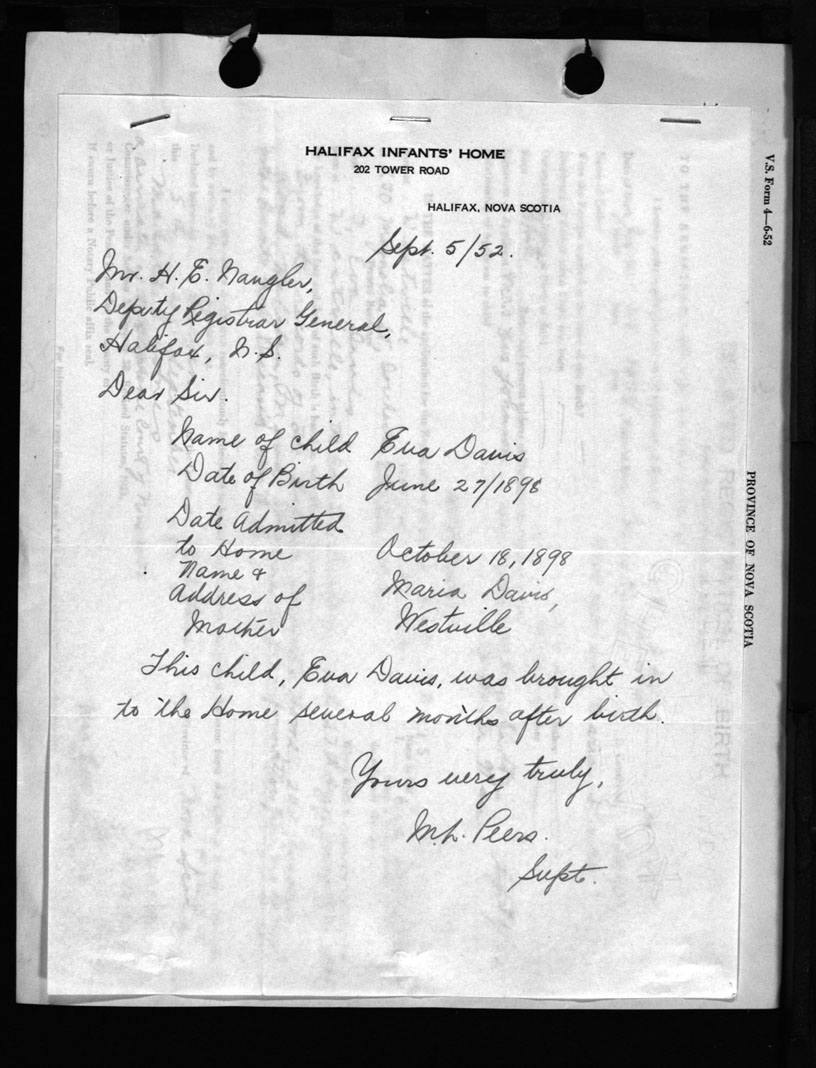 HALIFAX INFANTS' HOME
202 TOWER ROAD
HALIFAX, NOVA SCOTIA
Sept. 5/52.
Mr. H. E. Nangler,
Deputy Registrar General,
Halifax, N.S.
Dear Sir.
Name of child Eva Davis
Date of Birth June 27/1898
Date Admitted
to Home October 18, 1898
Name &
Address of Maria Davis,
Mother Westville
This child, Eva Davis, was brought in
to the Home several months after birth.
Yours very truly,
M.L. Peers.
Supt.
V.S. Form 4—6-52
PROVINCE OF NOVA SCOTIA